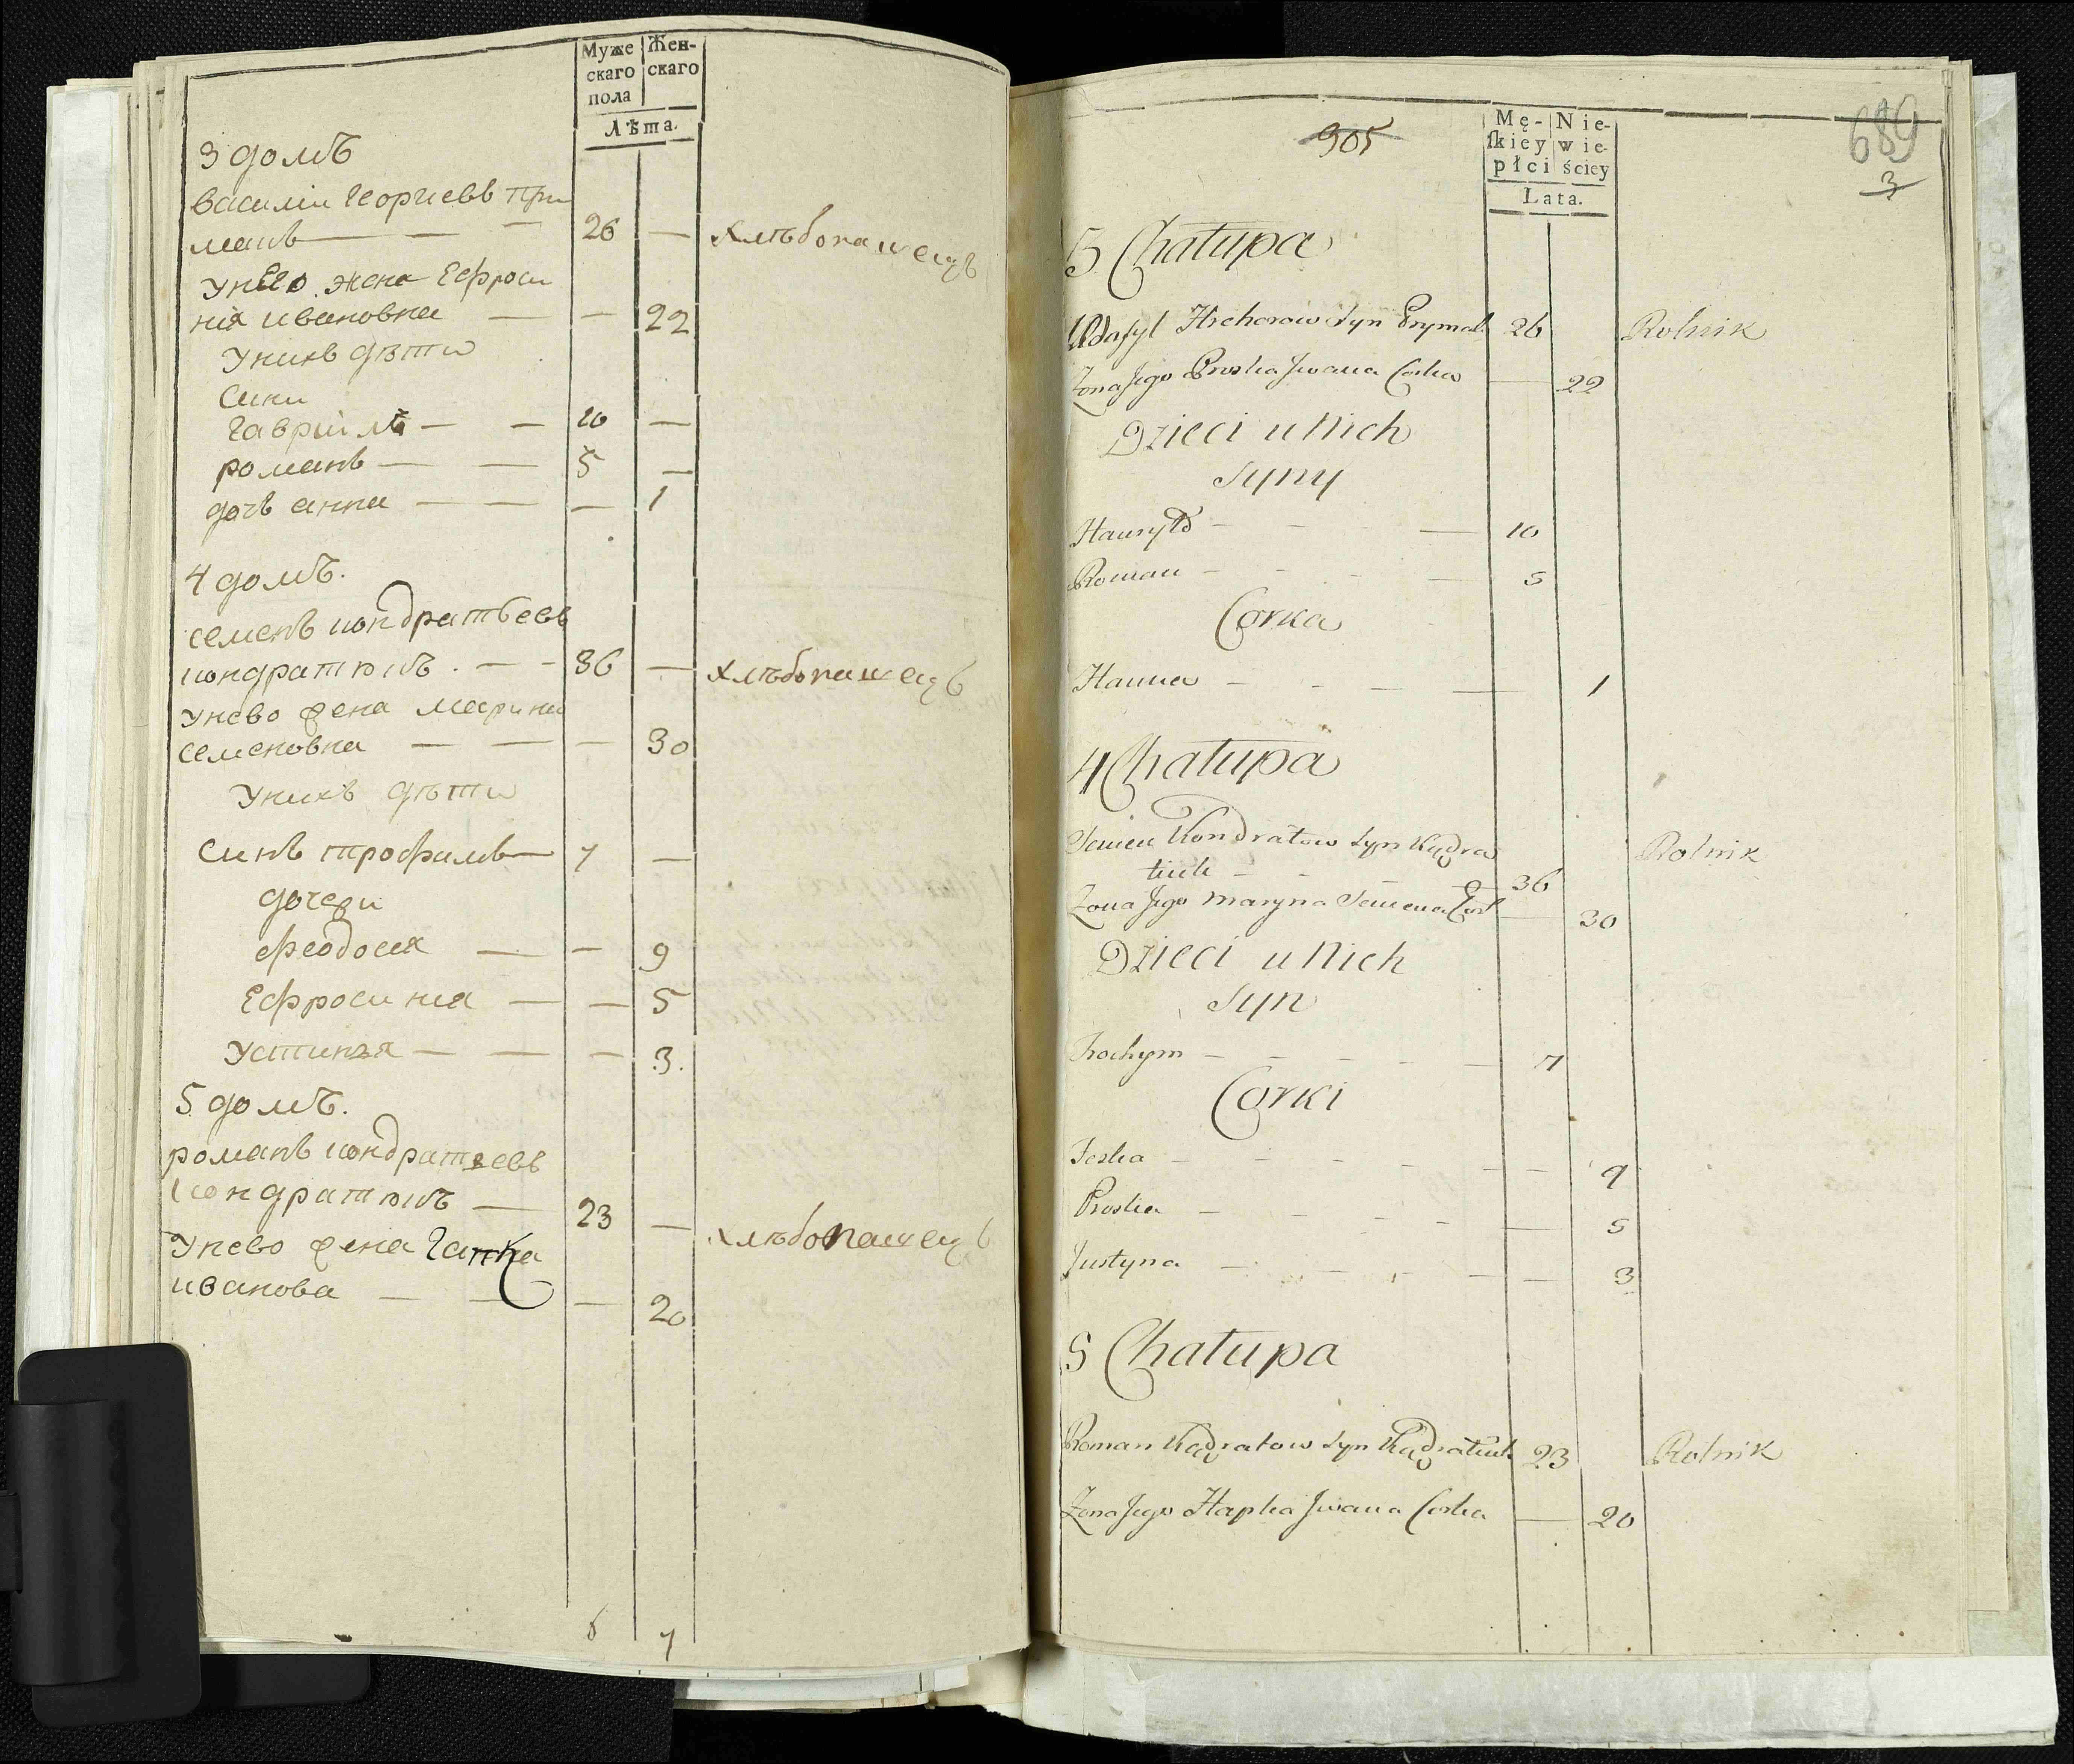 Муже
скаго
пола
Жен-
скаго
Лѣта.
3 домъ
василiи георгиевъ при
манъ — — — 26 — хлѣбопашецъ
унего жена Ефроси
ния ивановна — — 22
унихъ дѣти
сини
гаврiилъ — — 10 —
романъ — — 5 —
дочъ анна — — — 1
4 домъ.
семенъ кондратьевъ
кондратюкъ. — — 36 — хлѣбопашецъ
унево жена марина
семеновна — — — 30
унихъ дѣти
синъ трофимъ — 7 —
дочери
феодосия — — 9
Ефросиния — — 5
устиния — — — 3.
5 домъ.
романъ кондратьевъ
кондратюкъ — 23 — хлѣбопашецъ
унево жена гапка
иванова — — — 20
6 7
905
689
3
Mę-
ſkiey
płci
Nie-
wie-
ściey
Lata.
3 Chałupa
Wasyl Hrehorow Syn Pryma 26 Rolnik
Zona Jego Proska Jwana Corka — 22
Dzieci u Nich
Syny
Hauryło — — — 10
Roman — — — — 5
Corka
Hanna — — — — 1
4 Chałupa
Semen Kondratow Syn Kądra Rolnik
tiuk — — 36
Zona Jego Maryna Semena Cor — 30
Dzieci u Nich
Syn
Trochym — — — — — 7
Corki
Feska — — — — — — 9
Proska — — — — — 5
Justyna — — — — — — 3
5 Chałupa
Roman Kądratow Syn Kądratiuk 23 Rolnik
Zona Jego Hapka Jwana Corka — 20